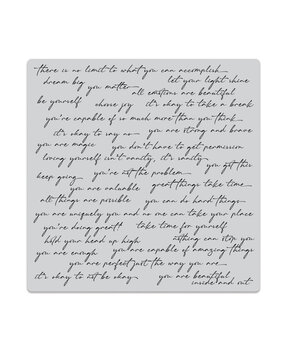 there is no limit to what you can accomplish
dream big you matter let your light shine
all emotions are beautiful
be yourself choose joy it's okay to take a break
you're capable of so much more than you think
it's okay to say no you are strong and brave
you are magic you don't have to get permission
loving yourself isn't vanity, it's sanity
you got this
keep going you're not the problem
you are valuable great things take time
all things are possible you can do hard things
you are uniquely you and no one can take your place
you're doing great! take time for yourself
hold your head up high nothing can stop you
you are enough you are capable of amazing things
you are perfect just the way you are
it's okay to not be okay you are beautiful
inside and out